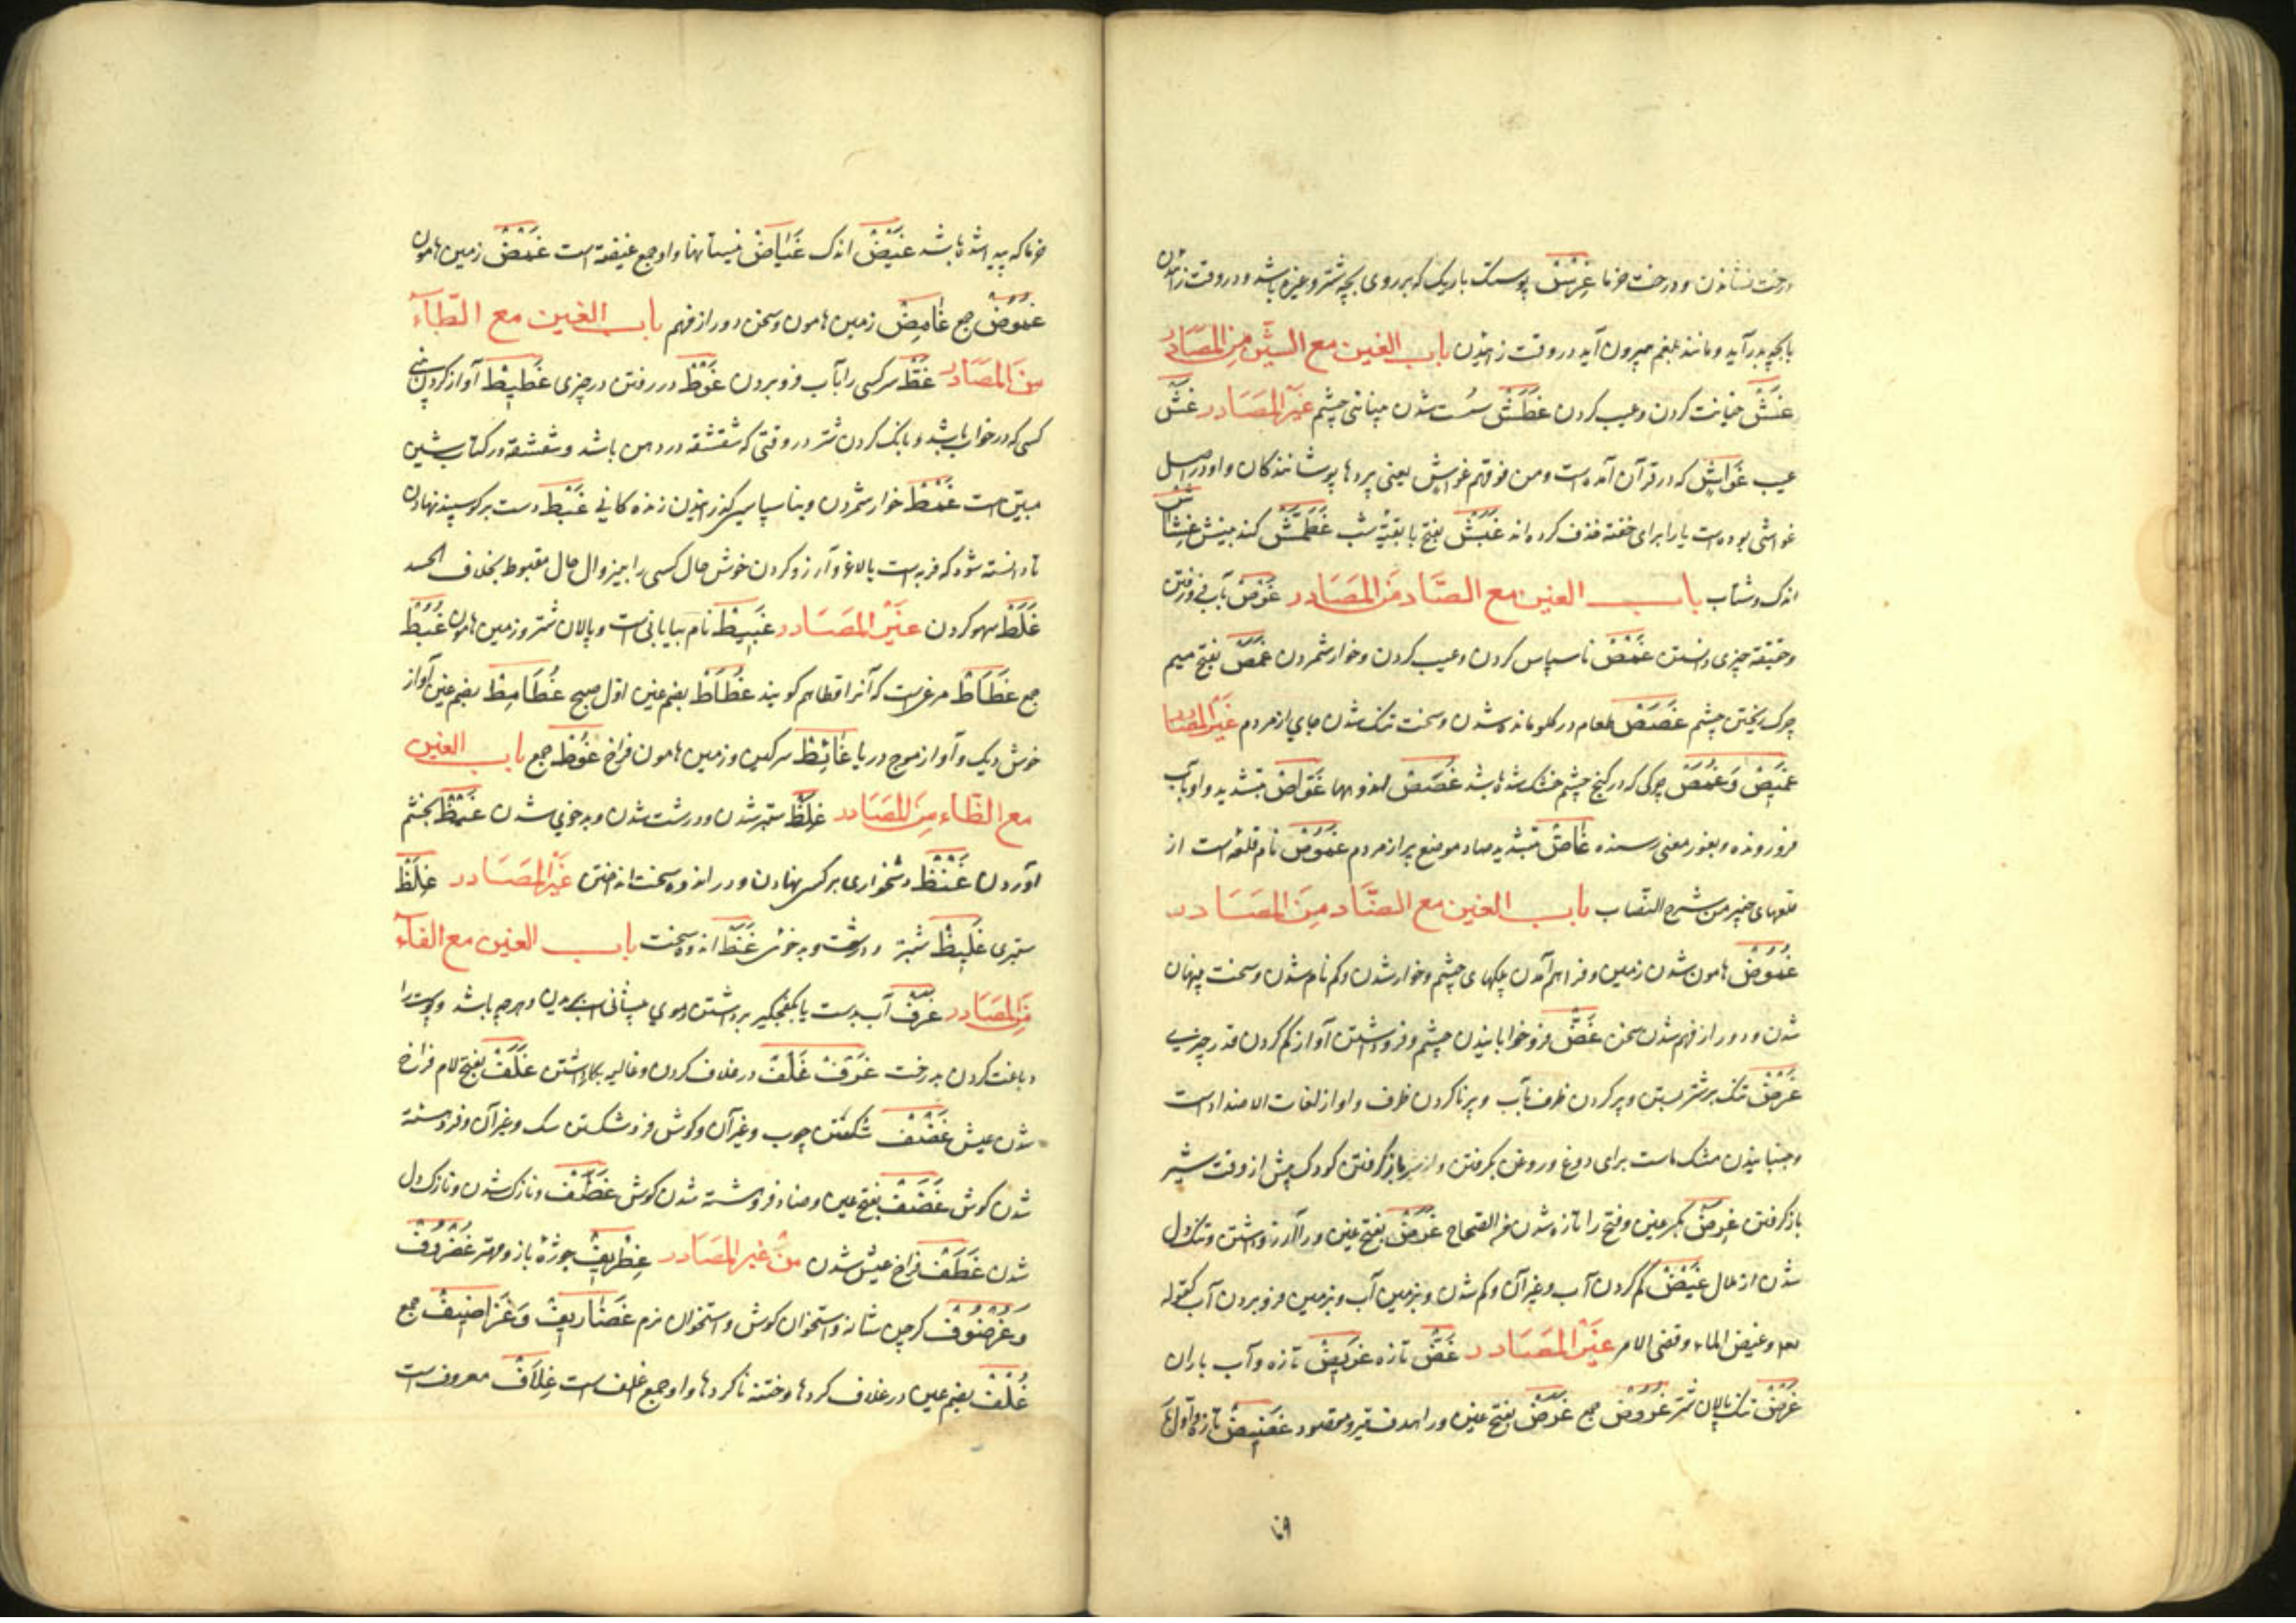 درخت نشاندن و درخت خرما غِرْسٌ پوستک باریک که بر روی بچه شتر و غیره باشد و در وقت زادن
با بچه بدر آید و مانند بلغم بیرون آید در وقت زاییدن باب الغین مع الشین من المصادر
غَشّ خیانت کردن و عیب کردن غَطَش سست شدن بینائی چشم غیر المصادر غشّ
عیب غَوَاشٍ که در قرآن آمده است و من فوقهم غواش یعنی پردها پوشانندکان و او در اصل
غواشی بوده است یا را برای خفته حذف کرده اند غَبَش بفتح با بقیّه شب غَطَمَّش کند بینش غِشَاش
اندک و شتاب باب الغین مع الصاد من المصادر غَوْص بآب فرو رفتن
و حقیقة چیزی دانستن غَمْص ناسپاس کردن و عیب کردن و خوار شمردن غَمَص بفتح میم
چرک ریختن چشم غَصَص طعام در کلو مانده شدن و سخت تنک شدن جای از مردم غیر المصادر
غَمِیص و غَمَص چرکی که در کنج چشم خشک شده باشد غُصَص اندوهها غَوّاص بتشدید واو بآب
فرو رونده و بغور معنی رسنده غَاصّ بتشدید صاد موضع پر از مردم غَمُوص نام قلعه است از
قلعهای خیبر من شرح النصاب باب الغین مع الضاد من المصادر
غُمُوض هامون شدن زمین و فراهم آمدن پلکهای چشم و خوار شدن و کم نام شدن و سخت پنهان
شدن و دور از فهم شدن سخن غَضّ فرو خوابانیدن چشم و فرو داشتن آواز کم کردن قدر چیزی
غَرْض تنک بر شتر بستن و پر کردن ظرف بآب و پر ناکردن ظرف و او از لغات الاضداد است
و جنبانیدن مشک ماست برای دوغ و روغن گرفتن و از شیر باز گرفتن کودک پیش از وقت شیر
باز گرفتن غِرَض بکسر غین و فتح را تازه شدن فی الصحاح غَرَض بفتح غین و را آرزو داشتن و تنک دل
شدن از ملال غَیْض کم کردن آب و غیر آن و کم شدن و بزمین آب و بزمین فرو بردن آب کقوله
تعه و غیض الماء و قضی الامر غیر المصادر غَضّ تازه غَرِیض تازه و آب باران
غَرْض تنک پالان شتر غُرُوض جمع غَرَض بفتح غین و را هدف تیر و مقصود غَضِیض تازه و اول
خرما که پیدا شده باشد غَیْض اندک غِیَاض نیستانها و او جمع غیضة است غَمْض زمین هامون
غُمُوض جمع غَامِض زمین هامون و سخن دور از فهم باب الغین مع الطاء
من المصادر غَطّ سر کسی را بآب فرو بردن غَوْط در رفتن در چیزی غَطِیط آواز کردن بینی
کسی که در خواب باشد و بانک کردن شتر در وقتی که شقشقه در دهن باشد و شقشقه در کتاب شین
مبیّن است غَمْط خوار شمردن و بناسپاسی گذرانیدن زندکانی غَبْط دست بر کوسپند نهادن
تا دانسته شود که فربه است یا لاغر و آرزو کردن خوش حال کسی را بی زوال حال مغبوط بخلاف الحسد
غَلَط سهو کردن غیر المصادر غَبِیط نام بیابانی است و پالان شتر و زمین هامون غُبُط
جمع غَطَاط مرغیست که آنرا قطا هم کویند غُطَاط بضم غین اول صبح غُطَامِط بضم غین آواز
جوش دیک و آواز موج دریا غَائِط سرکین و زمین هامون فراخ غُوط جمع باب الغین
مع الظاء من المصادر غِلَظ ستبر شدن و درشت شدن و بد خوئی شدن غَیْظ بخشم
آوردن غَنْظ دشخواری بر کس نهادن و در اندوه سخت انداختن غیر المصادر غِلَظ
ستبری غَلِیظ ستبر و درشت و بد خوئی غَنْظ اندوه سخت باب الغین مع الفاء
من المصادر غَرْف آب بدست یا بکفچکیر برداشتن و موی پیشانی اسب بریدن و هر چه باشد و پوست را
دباغت کردن بدرخت غَرَف غَلْف در غلاف کردن و غالیه بکار داشتن غَلَف بفتح لام فراخ
شدن عیش غَضْف شکستن چوب و غیر آن و کوش فرو شکستن سک و غیر آن و فروهشته
شدن کوش غَضَف بفتح غین و ضاد فروهشته شدن کوش غَضَف و نازک شدن و نازک دل
شدن غَطَف فراخ عیش شدن من غیر المصادر غِطْرِیف جوژهٔ باز و مهتر غُضْرُوف
و غُرْضُوف کرجن شانه و استخوان کوش و استخوان نرم غَضَارِیف و غَرَاضِیف جمع
غُلْف بضم غین در غلاف کردها و ختنه ناکردها و او جمع اغلف است غِلَاف معروف است